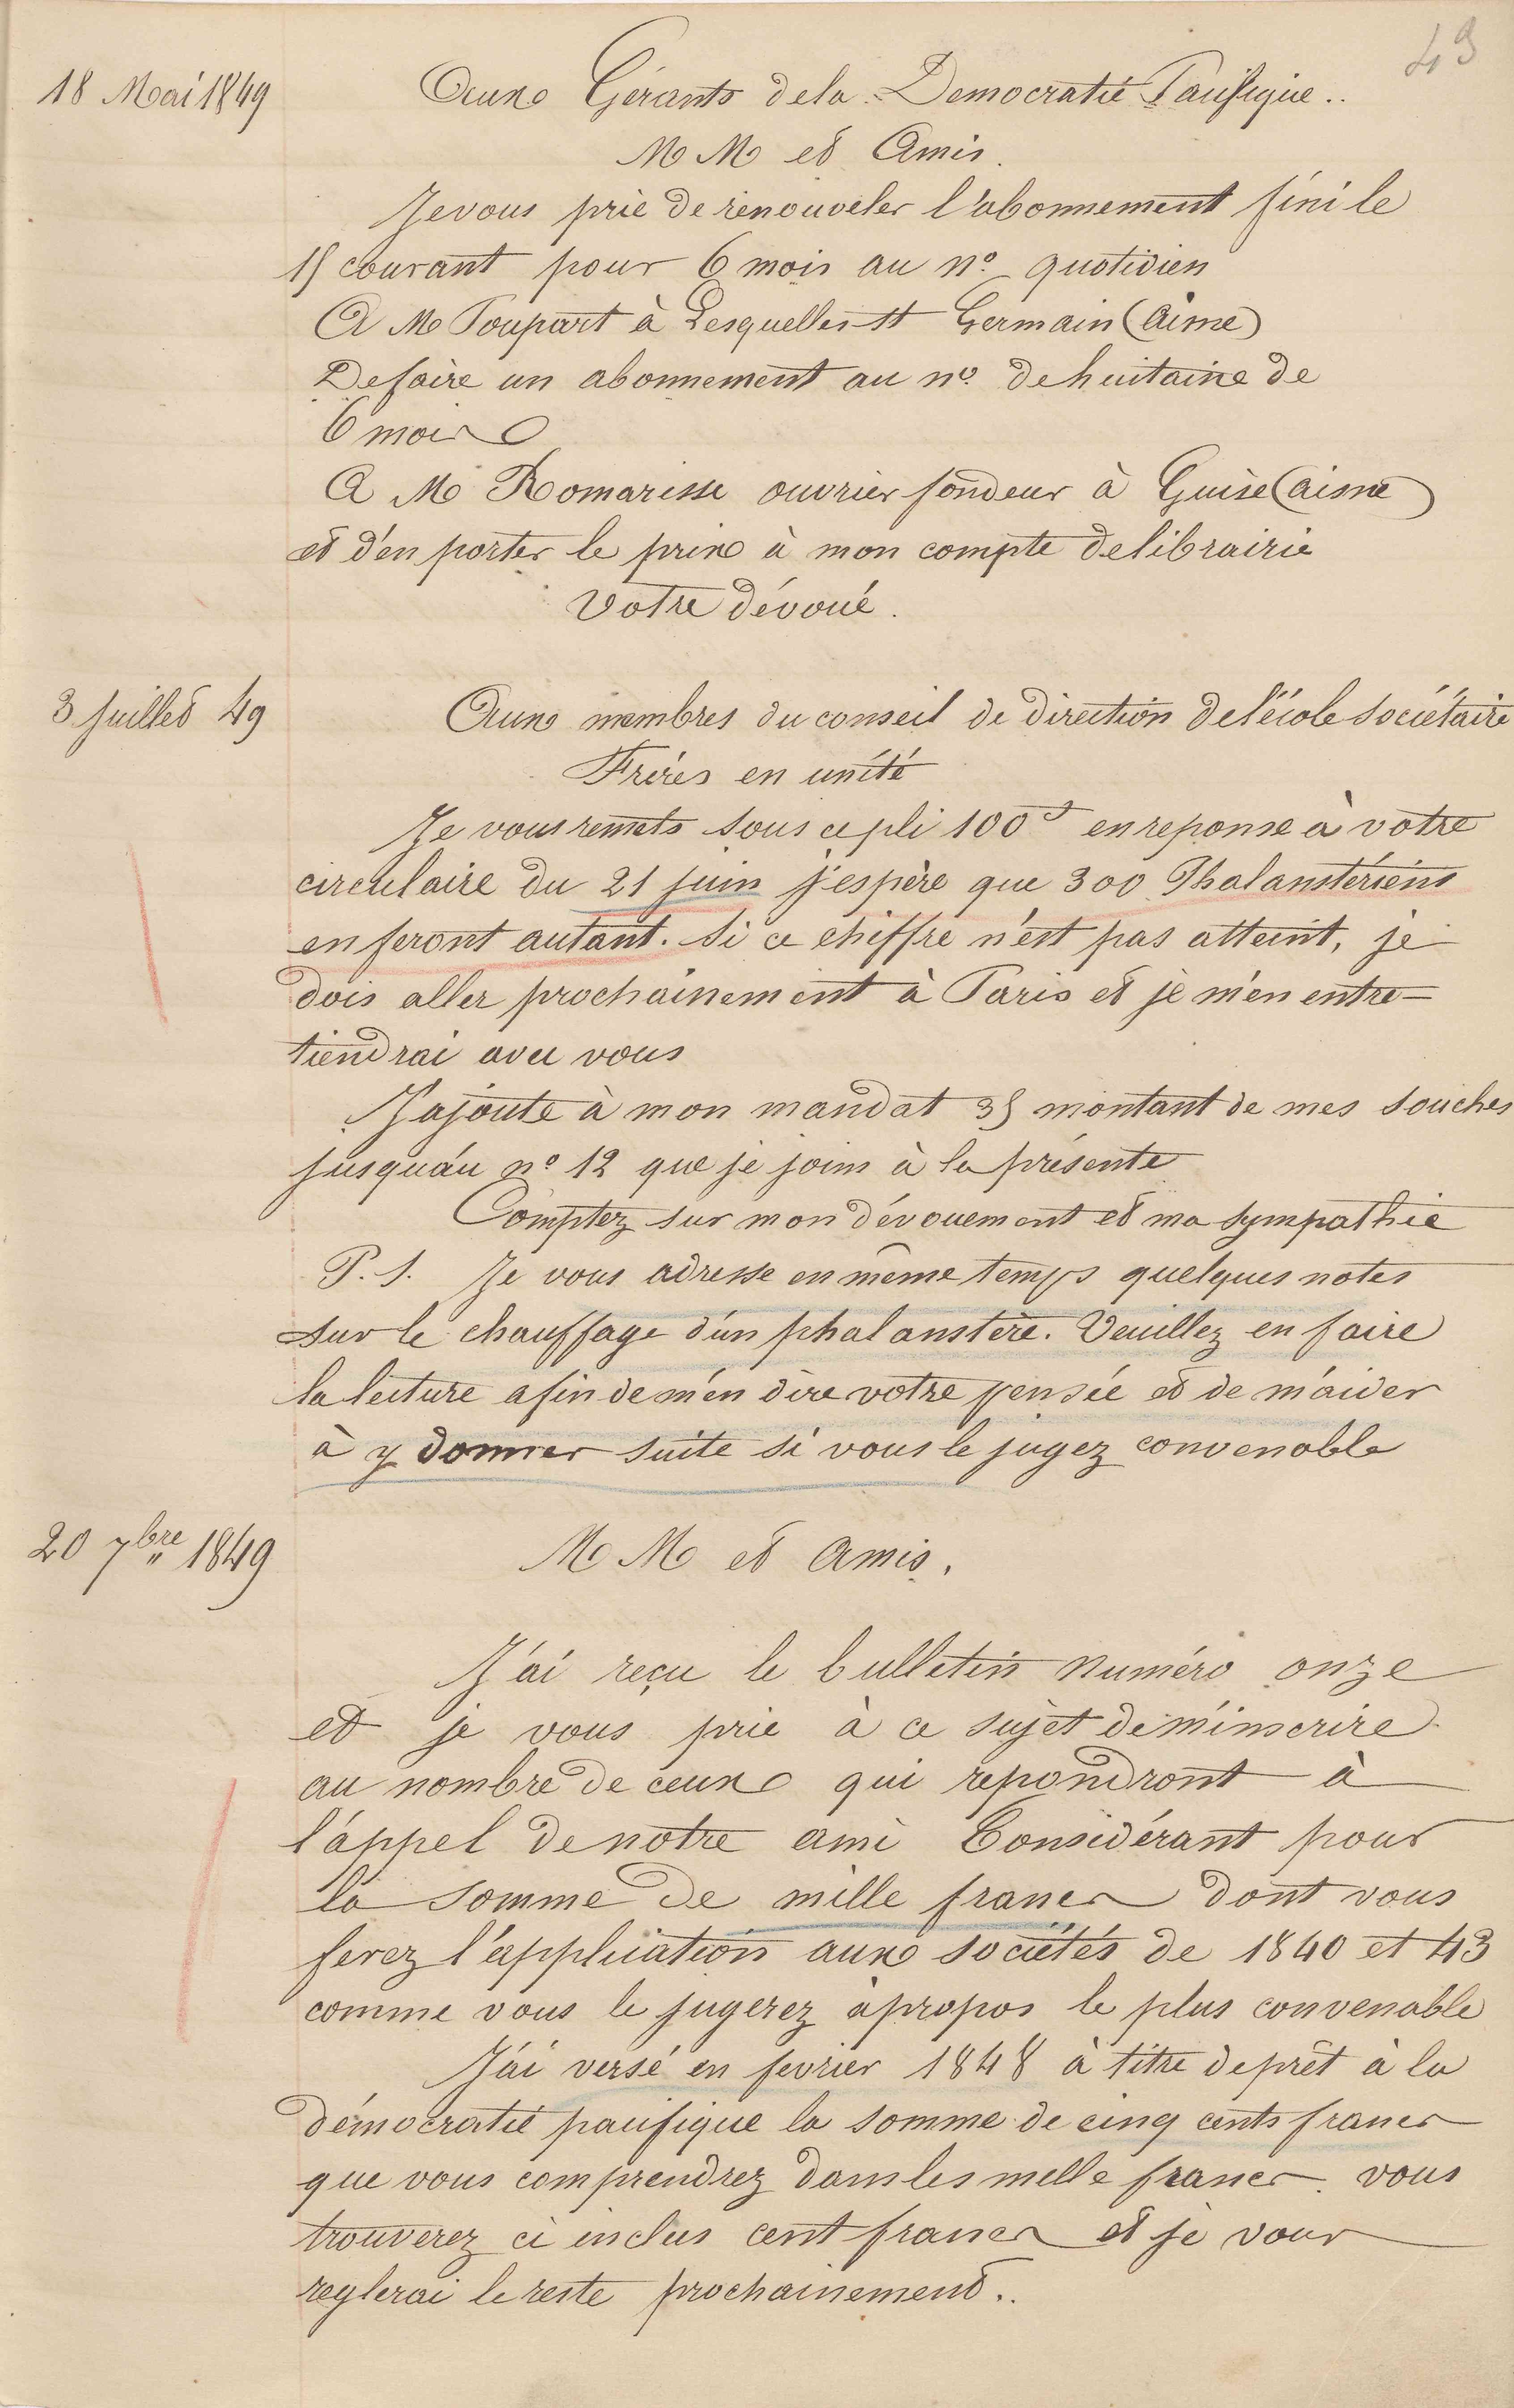 43
18 Mai 1849
Aux Gérants de la Democratie Pacifique..
M M et Amis.
Je vous prie de renouveler l'abonnement fini le
15 courant pour 6 mois au n° quotidien
A M Poupart à Lesquelles st Germain (Aisne)
De faire un abonnement au n° de huitaine de
6 mois
A M Romarisse ouvrier fondeur à Guise (aisne)
et d'en porter le prix à mon compte de librairie
Votre dévoué.
3 Juillet 49
Aux membres du conseil de direction de l'école sociétaire
Frères en unité
Je vous remets sous ce pli 100 f en reponse à votre
circulaire du 21 juin j'espère que 300 Phalanstériens
en feront autant. Si ce chiffre n'est pas atteint, je
dois aller prochainement à Paris et je m'en entre-
tiendrai avec vous
J'ajoute à mon mandat 35 montant de mes souches
jusqu'au n° 12 que je joins à la présente
Comptez sur mon dévouement et ma sympathie
P. S. Je vous adresse en même temps quelques notes
sur le chauffage d'un phalanstère. Veuillez en faire
la lecture afin de m'en dire votre pensée et de m'aider
à y donner suite si vous le jugez convenable
20 7bre 1849
M M et Amis.
J'ai reçu le bulletin numéro onze
et je vous prie à ce sujet de m'inscrire
au nombre de ceux qui repondront à
l'appel de notre ami Considérant pour
la somme de mille francs dont vous
ferez l'application aux sociétés de 1840 et 43
comme vous le jugerez àpropos le plus convenable
J'ai versé en fevrier 1848 à titre de prêt à la
démocratie pacifique la somme de cinq cents francs
que vous comprendrez dans les melle francs. vous
trouverez ci inclus cent francs et je vous
reglerai le reste prochainement..